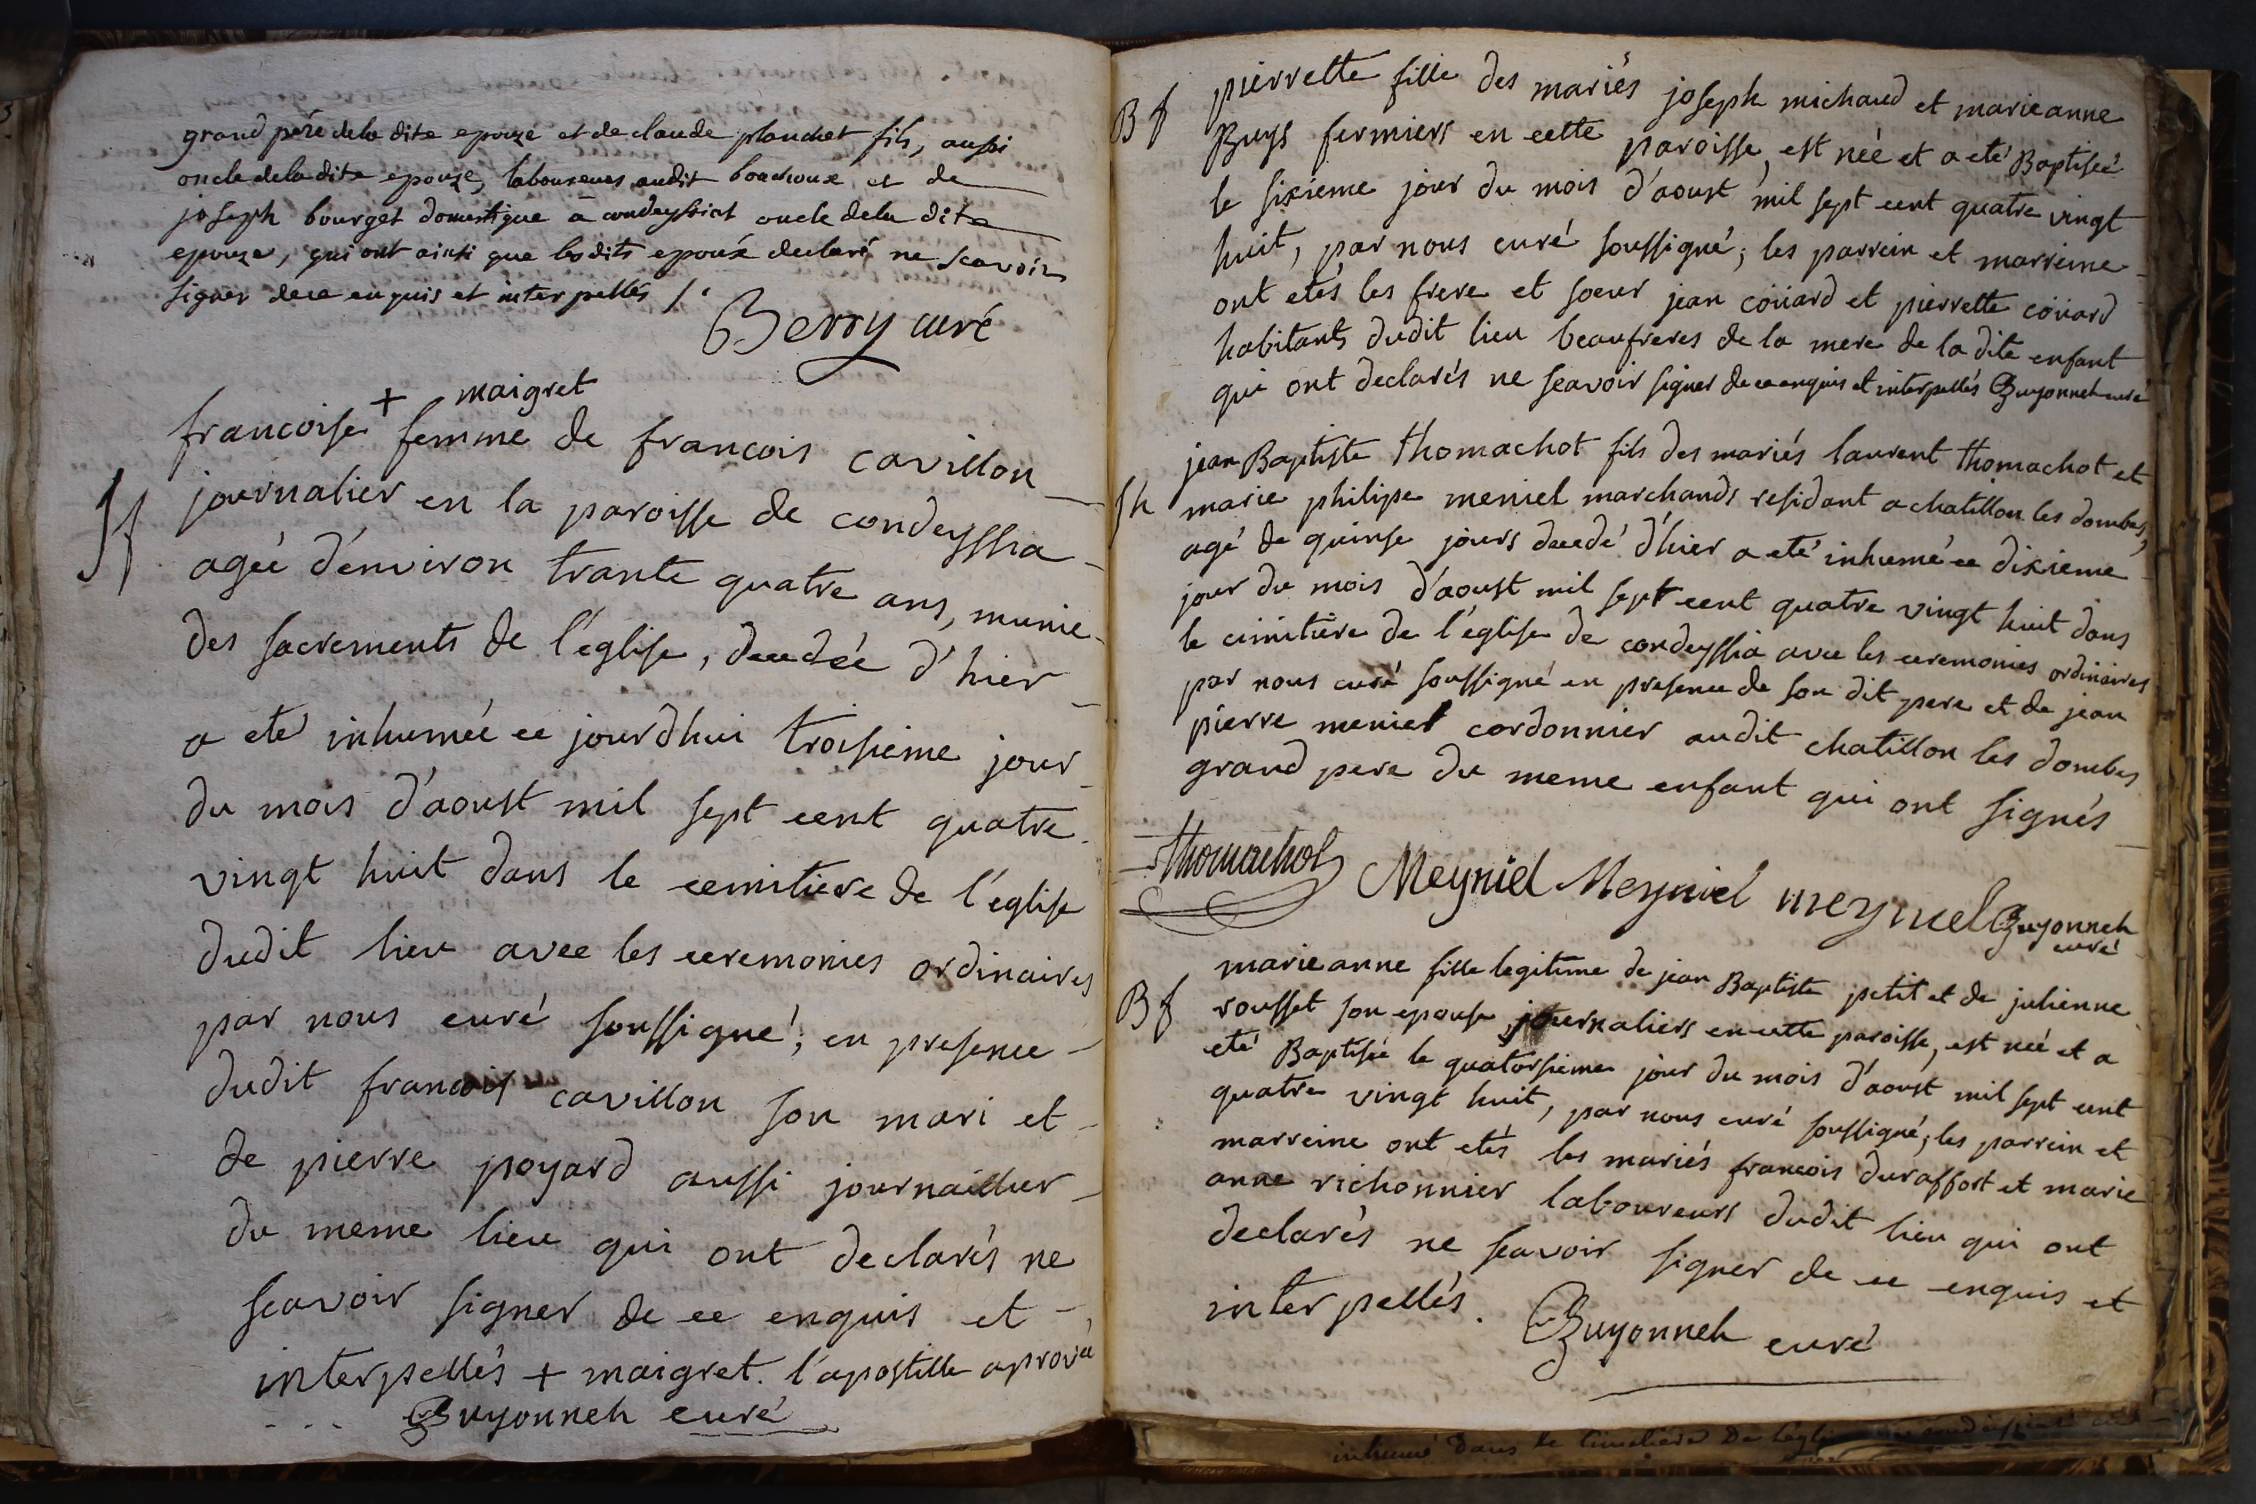 grand pére dela dite epouze et de claude planchet fils, aussi
oncle dela dite epouze, laboureurs audit bouchoux et de
joseph bourget domestique a condeyssiat oncle dela dite
epouze, qui ont ainsi que lesdits epoux declaré ne scavoir
signer dece enquis et interpellés /.
Berry curé
+ maigret
francoise femme de francois cavillon
Sf
journalier en la paroisse de condeyssia
ageé d'environ trante quatre ans, munie
des sacrements de l'eglise, decedée d'hier
a eté inhumeé ce jourdhui troisieme jour
du mois d'aoust mil sept cent quatre
vingt huit dans le cemitiere de l'eglise
dudit lieu avec les ceremonies ordinaires
par nous curé soussigné; en presence
dudit francois cavillon son mari et
de pierre poyard aussi journaillier
du meme lieu qui ont declarés ne
scavoir signer de ce enquis et
interpellés + maigret. l'apostille aprové
Buyonneh curé
pierrette fille des mariés joseph michaud et marieanne
Bf
Buys fermiers en cette paroisse, est neé et a eté Baptiseé
le sixieme jour du mois d'aoust mil sept cent quatre vingt
huit, par nous curé soussigné; les parrein et marreine
ont etés les frere et soeur jean coüard et pierrette coüard
habitants dudit lieu beaufreres de la mere de la dite enfant
qui ont declarés ne scavoir signer de ce enquis et interpellés Buyonneh curé
jean Baptiste thomachot fils des mariés laurent thomachot et
Sh
marie philipe meniel marchands residant a chatillon les dombes,
agé de quinse jours decedé d'hier a eté inhumé ce dixieme
jour du mois d'aoust mil sept cent quatre vingt huit dans
le cimitiere de l'église de condeyssia avec les ceremonies ordinaires
par nous curé soussigné en presence de son dit pere et de jean
pierre meniel cordonnier audit chatillon les dombes
grand pere du meme enfant qui ont signés
Thomachot Meyniel Meyniel meyniel Buyonneh
curé
marieanne fille legitime de jean Baptiste petit et de julienne
Bf
rousset son epouse journaliers en cette paroisse, est neé et a
eté Baptiseé le quatorsieme jour du mois d'aoust mil sept cent
quatre vingt huit, par nous curé soussigné; les parrein et
marreine ont etés les mariés francois duraffort et marie
anne richonnier laboureurs dudit lieu qui ont
declarés ne scavoir signer de ce enquis et
interpellés.
Buyonneh curé
inhumé dans le Cimetiere De l'église